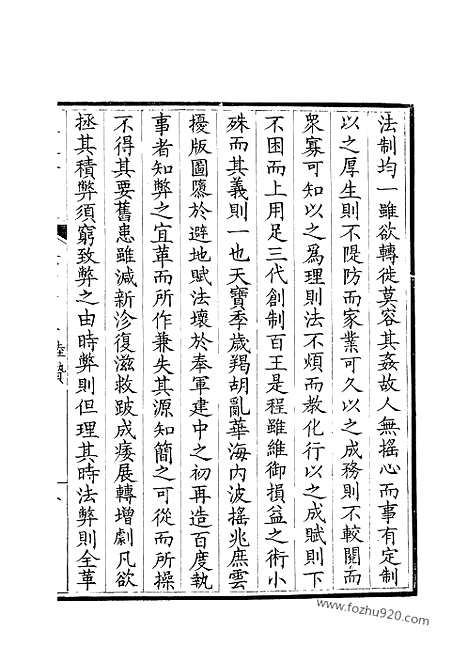 法制均一雖欲轉徙莫容其姦故人無搖心而事有定制
以之厚生則不隄防而家業可久以之成務則不較閱而
衆寡可知以之爲理則法不煩而教化行以之成賦則下
不困而上用足三代創制百王是程雖維御損益之術小
殊而其義則一也天寶季歲羯胡亂華海内波搖兆庶雲
擾版圖隳於避地賦法壞於奉軍建中之初再造百度執
事者知弊之宜革而所作兼失其源知簡之可從而所操
不得其要舊患雖減新沴復滋救跛成痿展轉增劇凡欲
拯其積弊須窮致弊之由時弊則但理其時法弊則全革
陸贄
www.fozhu920.com